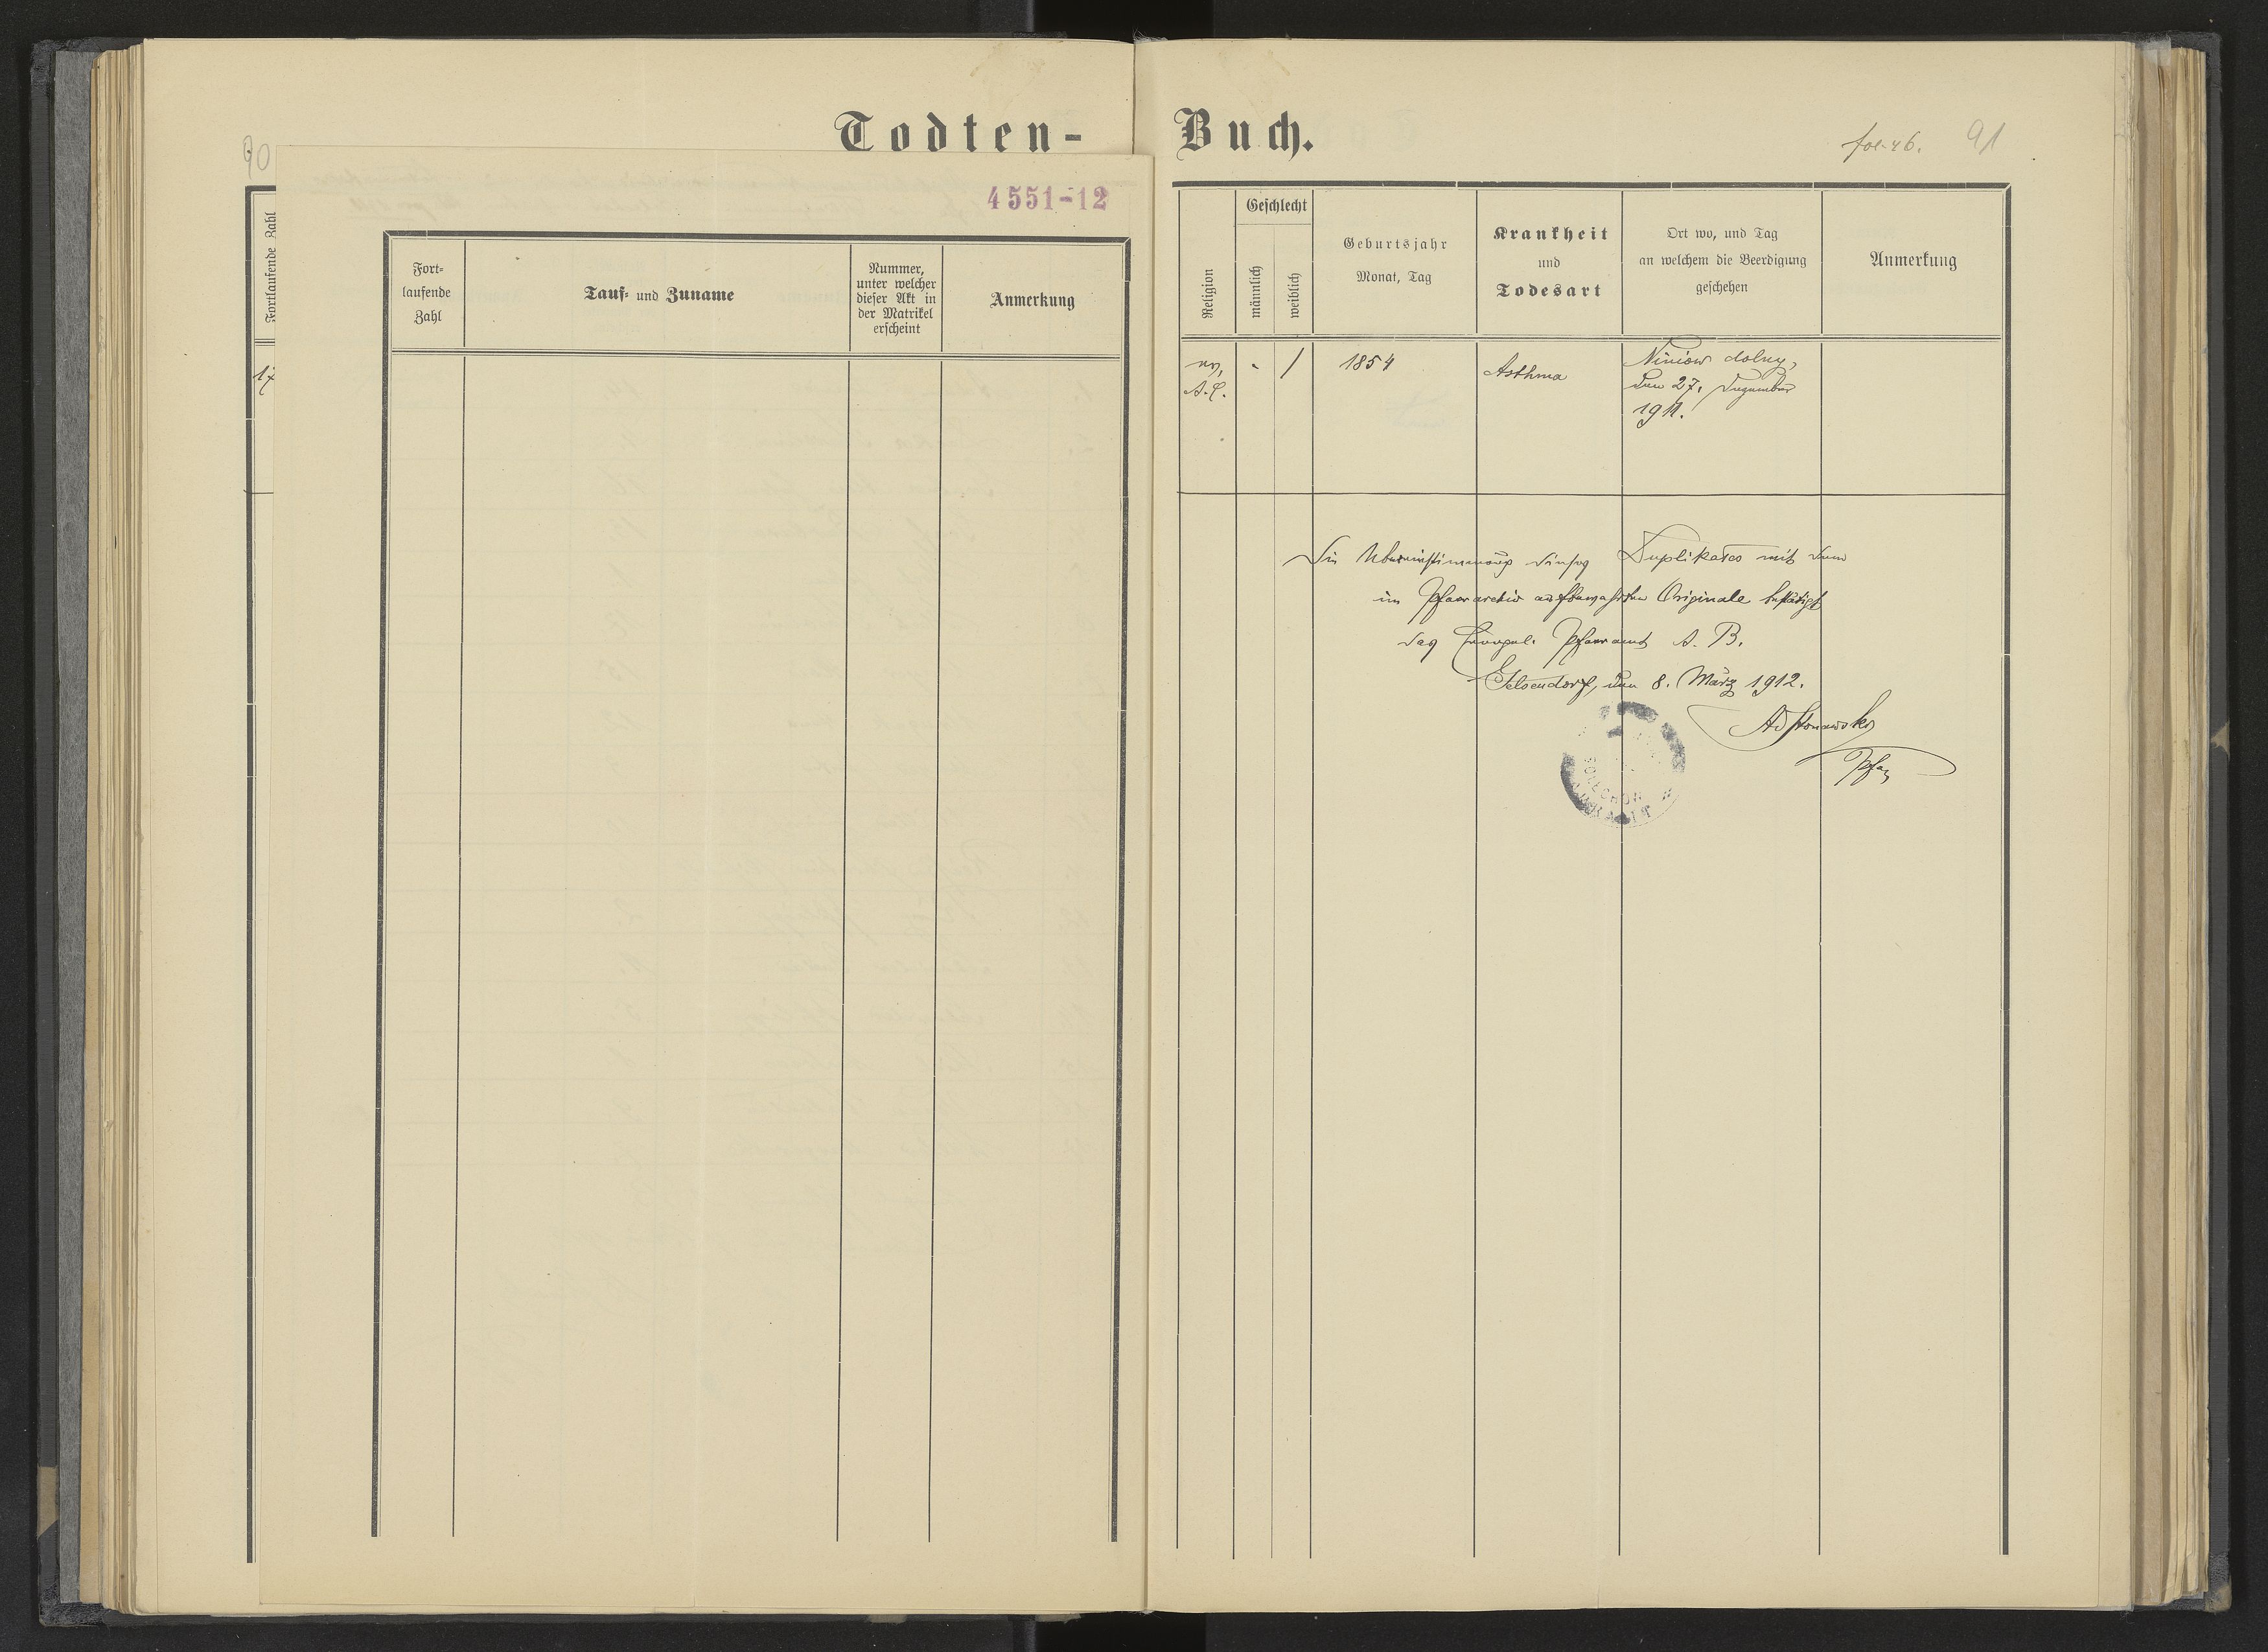 Todten-
Buch.
90
fol. 46.
91
4551-12
Fortlaufende Zahl
17
Fort-
laufende
Zahl
Tauf- und Zuname
Nummer,
unter welcher
dieser Akt in
der Matrikel
erscheint
Anmerkung
Religion
Geschlecht
männlich
weiblich
Geburtsjahr
Monat, Tag
Krankheit
und
Todesart
Ort wo, und Tag
an welchem die Beerdigung
geschehen
Anmerkung
ev.
A.C.
-
/
1854
Asthma
Niniow dolny,
den 27. Dezember
1911.
Die Übereinstimmung dieses Duplikates mit dem
im Pfarrarchiv aufbewahrten Originale bestätigt
das Evangel. Pfarramt A. B.
Gelsendorf, den 8. März 1912.
Pfar